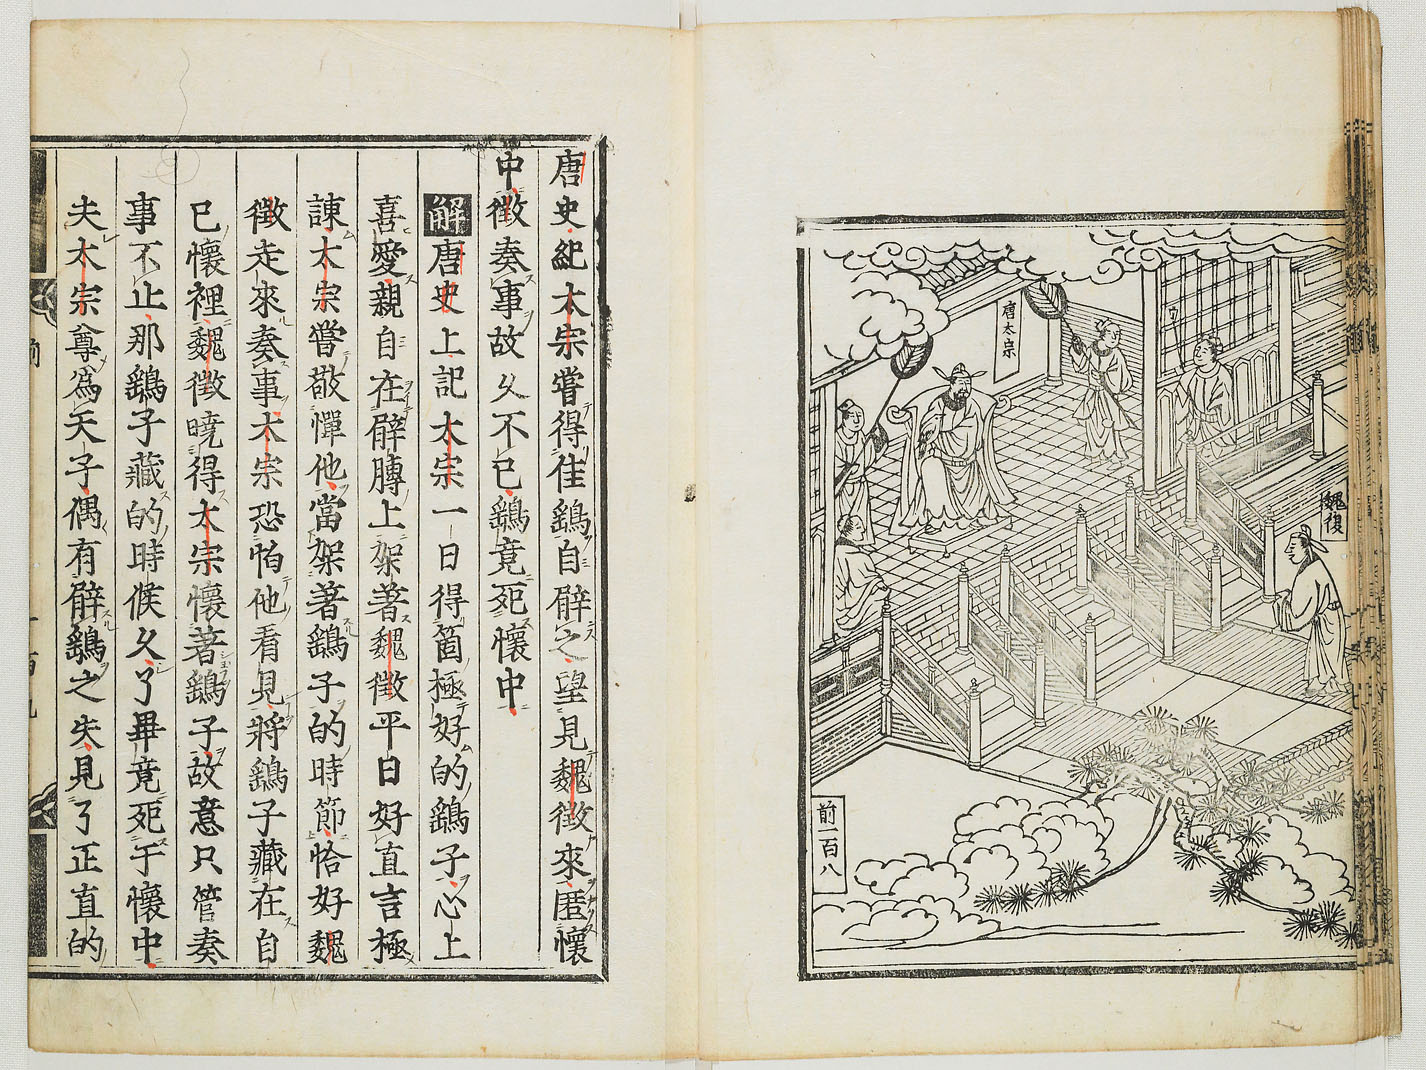 唐太宗
魏復
前一百八
唐史紀太宗嘗得佳鷂自臂之望見魏徵來匿懷
中徵奏事故久不已鷂竟死懷中
解唐史上記太宗一日得箇極好的鷂子心上
喜愛親自在臂膊上架著魏徵平日好直言極
諫太宗嘗敬憚他當架著鷂子的時節恰好魏
徵走來奏事太宗恐怕他看見將鷂子藏在自
已懷裡魏徵曉得太宗懷著鷂子故意只管奏
事不止那鷂子藏的時候久了畢竟死于懷中
夫太宗尊為天子偶有臂鷂之失見了正直的